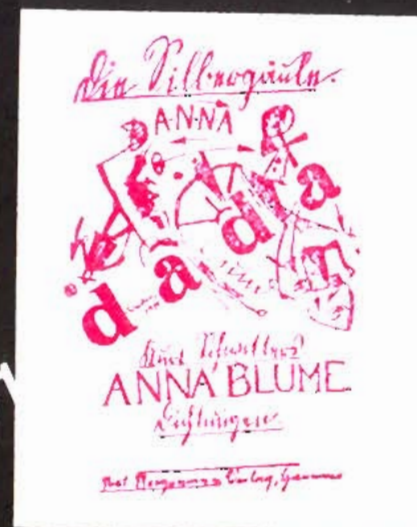 Die Silbergäule.
A·N·N·A
dada
Kurt Schwitters
ANNA BLUME
Dichtungen
Paul Steegemann Verlag, Hannover